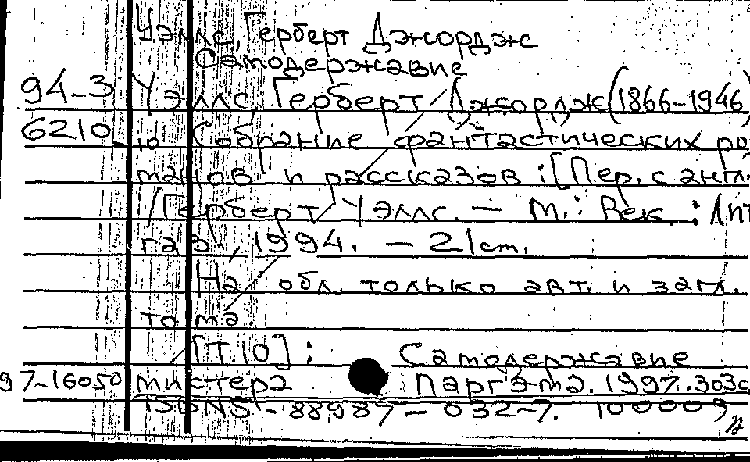 Уэллс, Герберт Джордж
Самодержавие
94-3 Уэллс, Герберт Джордж (1866-1946)
6210 Собрание фантастических ро
манов и рассказов : [Пер. с англ.
/ Герберт Уэллс. — М.: Век. : Лит
газ, 1994. — 21 cm.
На обл. только авт. и загл.
тома.
[Т.10] : Самодержавие
97-16050 мистера Паргэма. 1997. 303с
ISBN 5-88987-032-7. 10000э